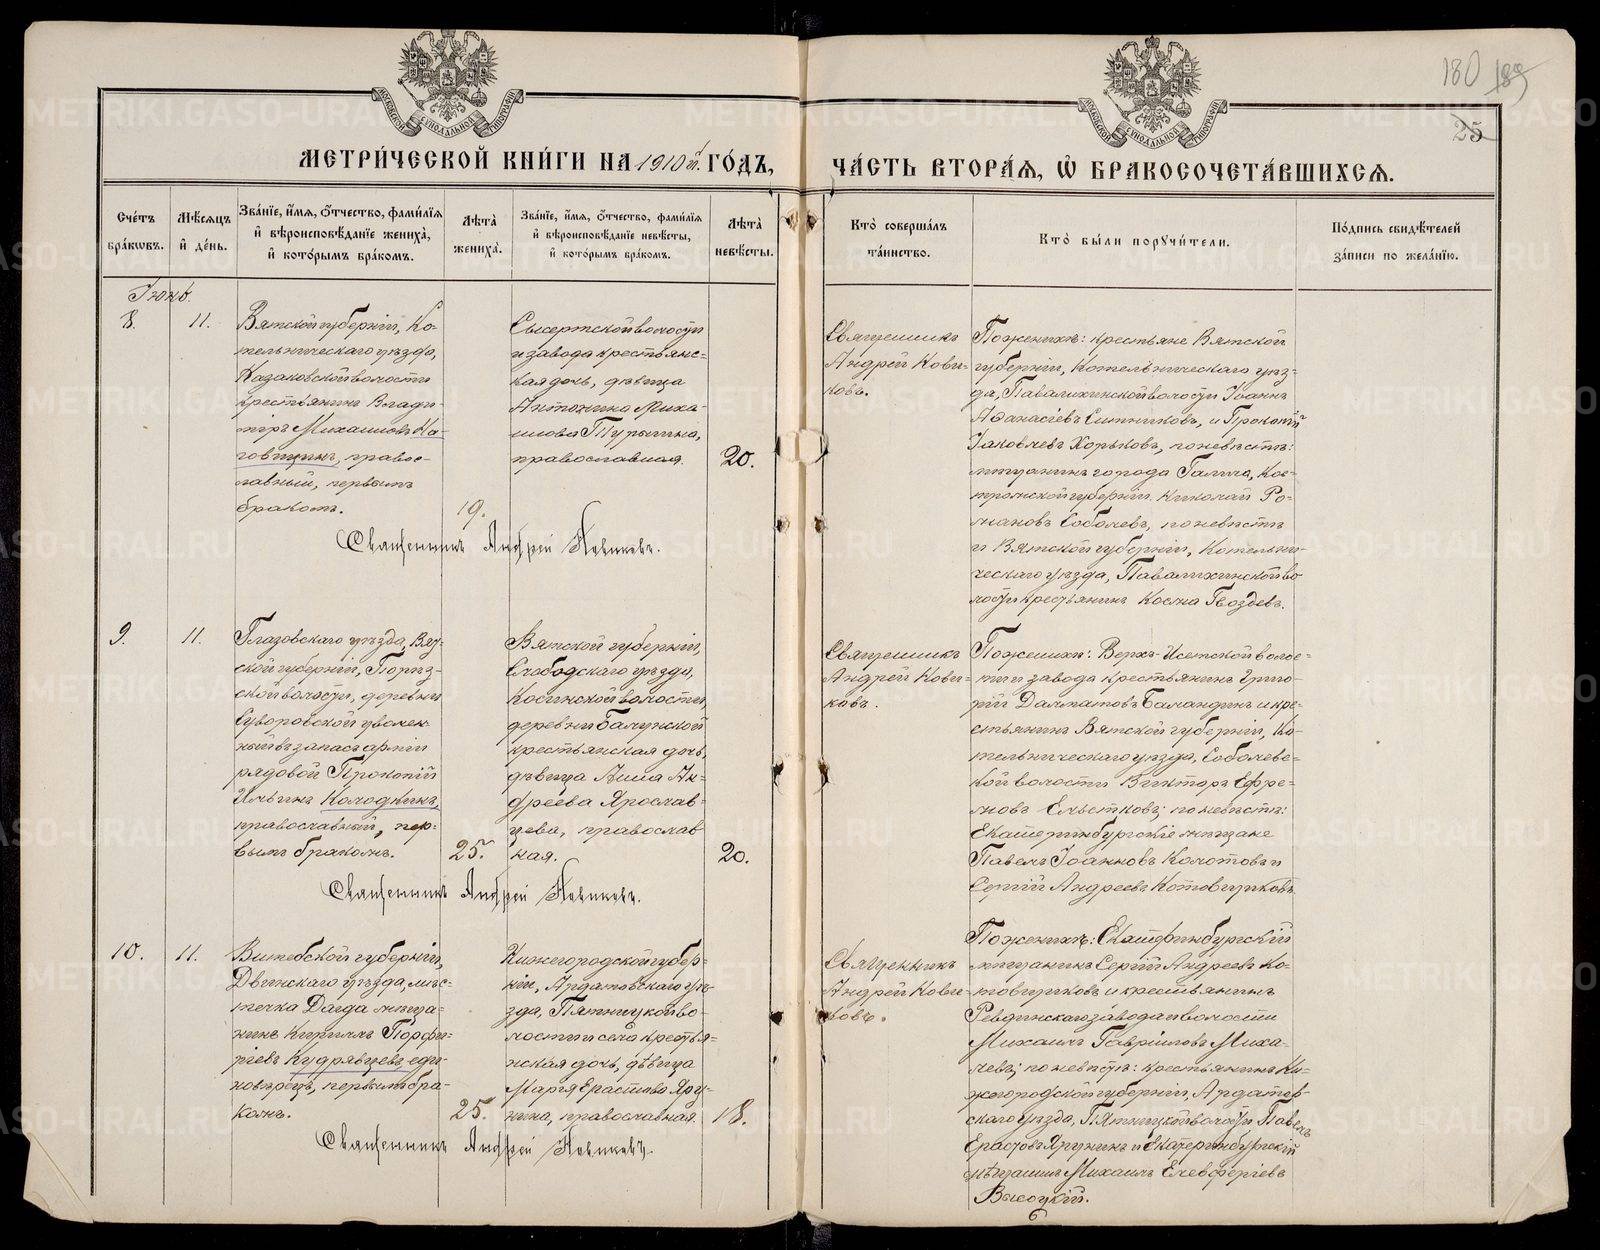 180 189
25
МЕТРИЧЕСКОЙ КНИГИ НА 1910й ГОДЪ,
ЧАСТЬ ВТОРАЯ, Ѡ БРАКОСОЧЕТАВШИХСЯ.
Счетъ браковъ.
Мѣсяцъ и день.
Званіе, имя, отчество, фамилія и вѣроисповѣданіе жениха, и которымъ бракомъ.
Лѣта жениха.
Званіе, имя, отчество, фамилія и вѣроисповѣданіе невѣсты, и которымъ бракомъ.
Лѣта невѣсты.
Кто совершалъ таинство.
Кто были поручители.
Подпись свидѣтелей записи по желанію.
Іюнь.
8.
11.
Вятской губерніи, Ко-
тельническаго уѣзда,
Казаковской волости
крестьянинъ Влади-
міръ Михаиловъ Ка-
говицинъ, правос-
лавный, первымъ
бракомъ.
19.
Сысертской волости
и завода крестьянс-
кая дочь, дѣвица
Антонина Миха-
илова Турыгина,
православная.
20.
Священникъ Андрей Новиковъ.
Священникъ
Андрей Нови-
ковъ.
По женихѣ: крестьяне Вятской
губерніи, Котельническаго уѣз-
да, Павалихинской волости Іоаннъ
Аѳанасіевъ Ситниковъ, и Прокопій
Іаковлевъ Хорьковъ, по невѣстѣ:
мѣщанинъ города Галича, Кос-
тромской губерніи Николай Ро-
мановъ Соболевъ, по невѣстѣ
и Вятской губерніи, Котельни-
ческаго уѣзда, Павалихинской во
лости крестьянинъ Косма Гвоздевъ.
9.
11.
Глазовскаго уѣзда, Вят-
ской губерніи,
ской волости, деревни
Суворовской уволен-
ный въ запасъ арміи
рядовой Прокопій
Ильинъ Колодкинъ,
православный, пер-
вымъ бракомъ.
25.
Вятской губерніи,
Слободскаго уѣзда,
Косинской волости,
деревни
крестьянская дочь,
дѣвица Анна Ан-
дреева Ярослав-
цева, православ
ная.
20.
Священникъ Андрей Новиковъ.
Священникъ
Андрей Нови-
ковъ.
По женихѣ: Верхъ-Исетской волос-
ти и завода крестьянинъ Григо-
рій Далматовъ Баландинъ и кре-
стьянинъ Вятской губерніи, Ко-
тельническаго уѣзда, Соболевс-
кой волости Викторъ Ефре-
мовъ по невѣстѣ:
Екатеринбургскіе мѣщане
Павелъ Іоанновъ Колотовъ и
Сергій Андреевъ Котовщиковъ.
10.
11.
Витебской губерніи,
Двинскаго уѣзда, мѣс-
течка Дагда мѣща-
нинъ Кириллъ Порфи-
ріевъ Кудрявцевъ, еди-
новѣрецъ, первымъ бра-
комъ.
25.
Нижегородской губер-
ніи, Ардатовскаго уѣ-
зда, Пятницкой во-
лости и села крестья-
нская дочь, дѣвица
Марія Ерастова Яру-
нина, православная.
18.
Священникъ Андрей Новиковъ.
Священникъ
Андрей Нови-
ковъ.
По женихѣ: Екатеринбургскій
мѣщанинъ Сергій Андреевъ Ко-
товщиковъ и крестьянинъ
Ревдинскаго завода и волости
Михаилъ Гавріиловъ Миха-
левъ; по невѣстѣ: крестьянинъ Ни-
жегородской губерніи, Ардатов-
скаго уѣзда, Пятницкой волости Павелъ
Ерастовъ Ярунинъ и Екатеринбургскій
мѣщанинъ Михаилъ Елевферіевъ
Высоцкій.